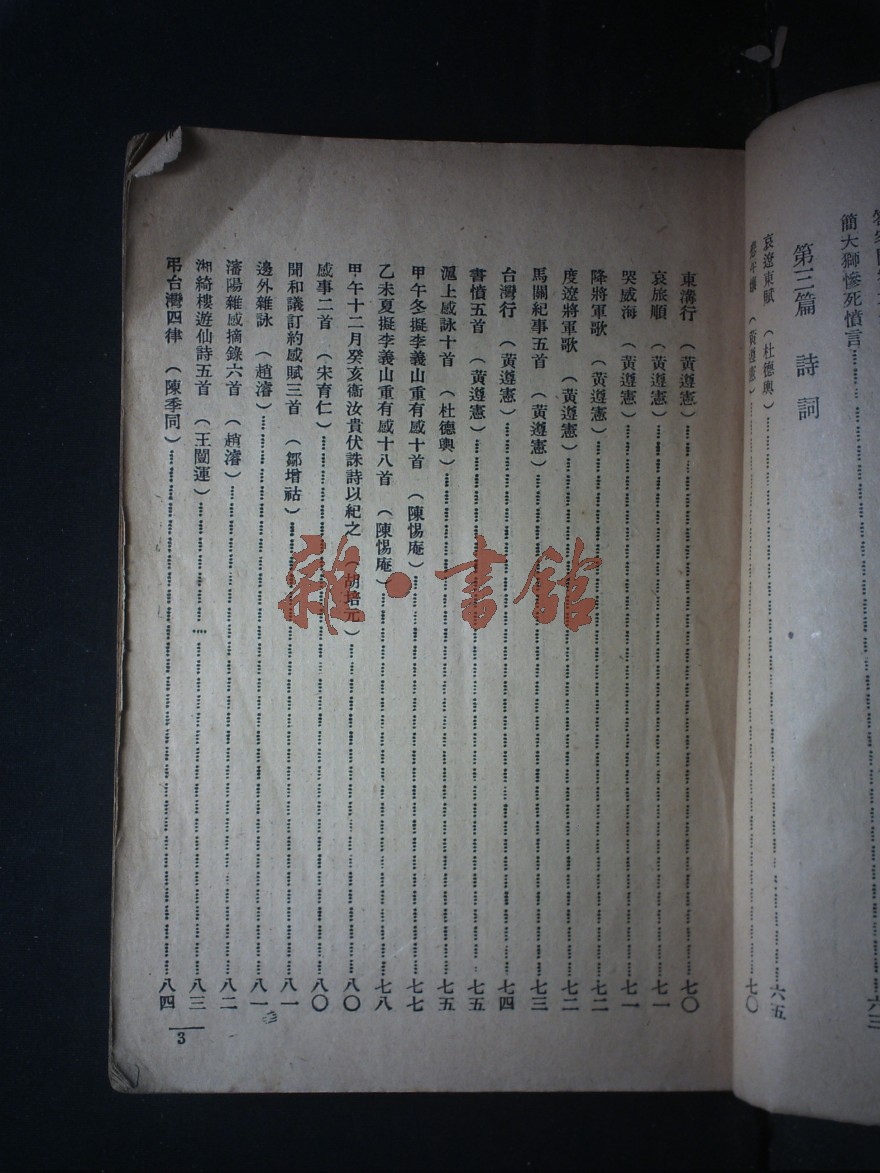 簡大獅慘死憤言……六三
第三篇 詩詞
哀遼東賦 (杜德輿)……六五
(黃遵憲)……七〇
東溝行 (黃遵憲)……七〇
哀旅順 (黃遵憲)……七一
哭威海 (黃遵憲)……七一
降將軍歌 (黃遵憲)……七二
度遼將軍歌 (黃遵憲)……七二
馬關紀事五首 (黃遵憲)……七三
台灣行 (黃遵憲)……七四
書憤五首 (黃遵憲)……七五
滬上感詠十首 (杜德輿)……七五
甲午冬擬李義山重有感十首 (陳惕庵)……七七
乙未夏擬李義山重有感十八首 (陳惕庵)……七八
甲午十二月癸亥衞汝貴伏誅詩以紀之 (胡培元)……八〇
感事二首 (宋育仁)……八〇
聞和議訂約感賦三首 (鄒增祜)……八一
邊外雜詠 (趙濬)……八一
瀋陽雜感摘錄六首 (趙濬)……八二
湘綺樓遊仙詩五首 (王闓運)……八三
弔台灣四律 (陳季同)……八四
3
雜·書館